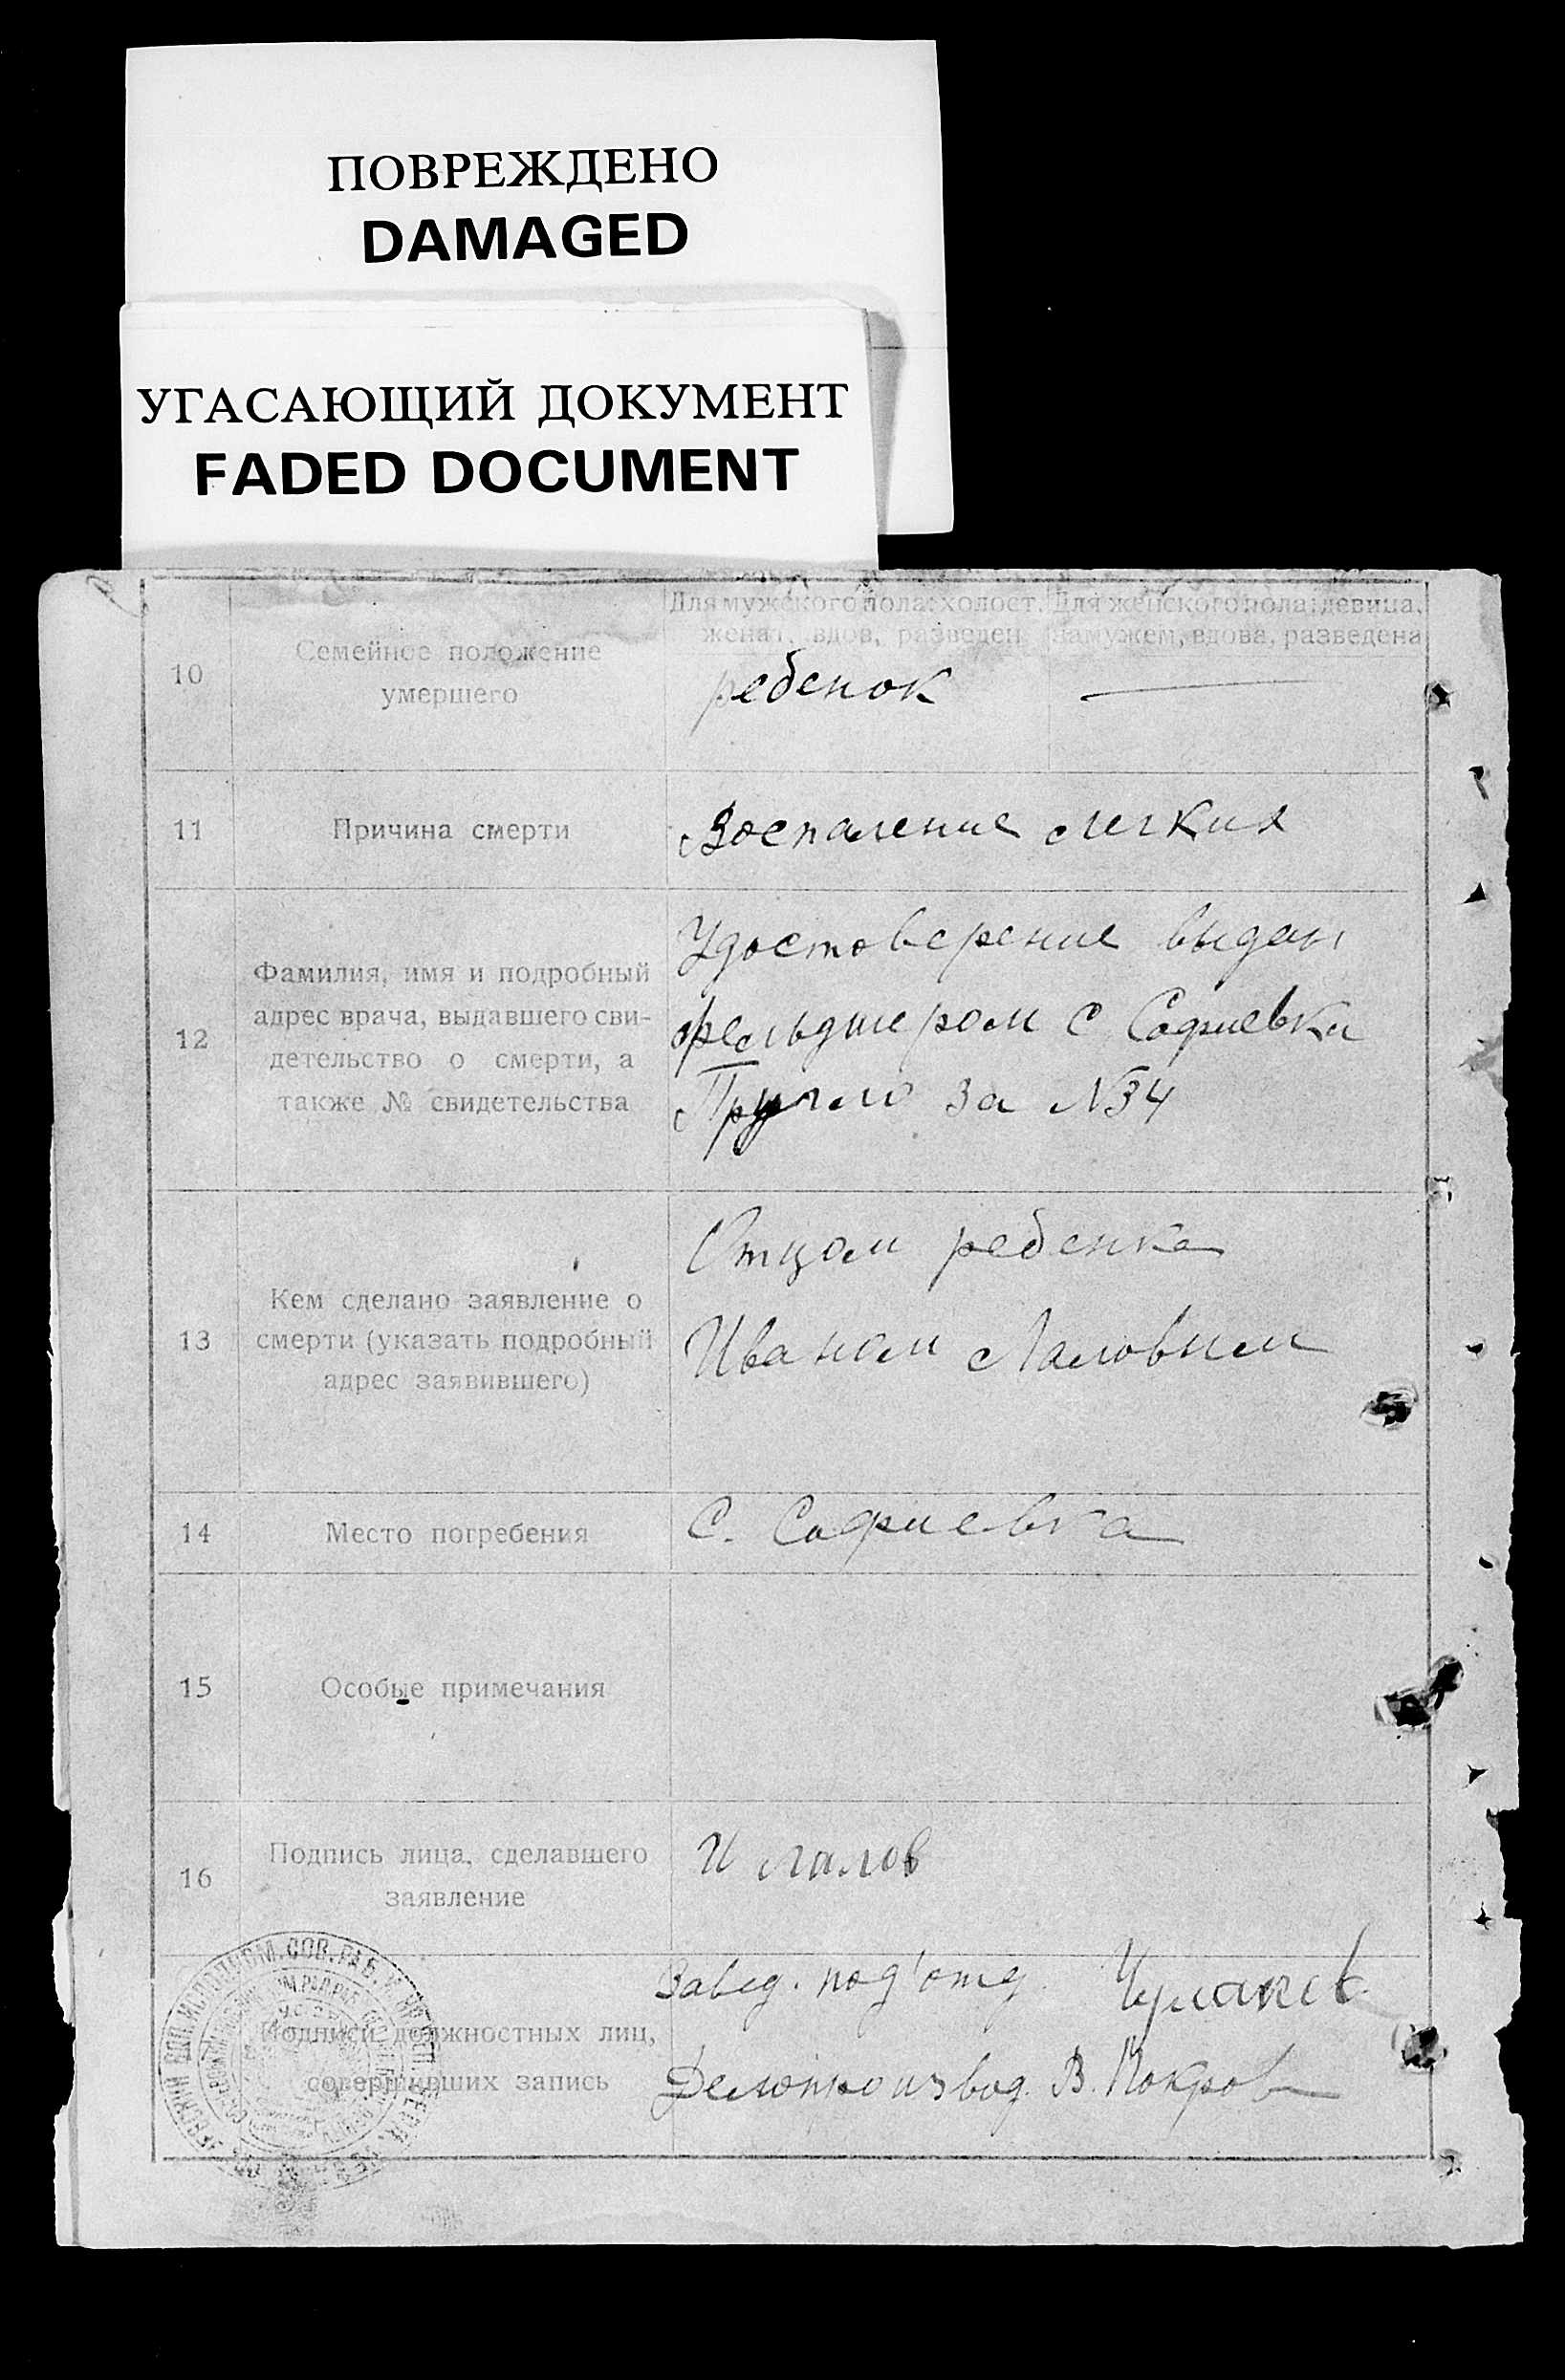 ПОВРЕЖДЕНО
DAMAGED
УГАСАЮЩИЙ ДОКУМЕНТ
FADED DOCUMENT
10
Семейное положение
умершего
Для мужского пола: холост,
женат, вдов, разведен
Для женского пола: девица,
замужем, вдова, разведена
ребенок
11
Причина смерти
Воспаление легких
12
Фамилия, имя и подробный
адрес врача, выдавшего сви-
детельство о смерти, а
также № свидетельства
Удостоверение выдан
фельдшером с Софиевки
за №34
13
Кем сделано заявление о
смерти (указать подробный
адрес заявившего)
Отцом ребенка
Иваном Лаловым
14
Место погребения
С. Софиевка
15
Особые примечания
16
Подпись лица, сделавшего
заявление
И Лалов
Подписи должностных лиц,
совершивших запись
Завед. под'отд
Делопроизвод. В. Покров
ИСПОЛКОМ. СОВ. РАБ.